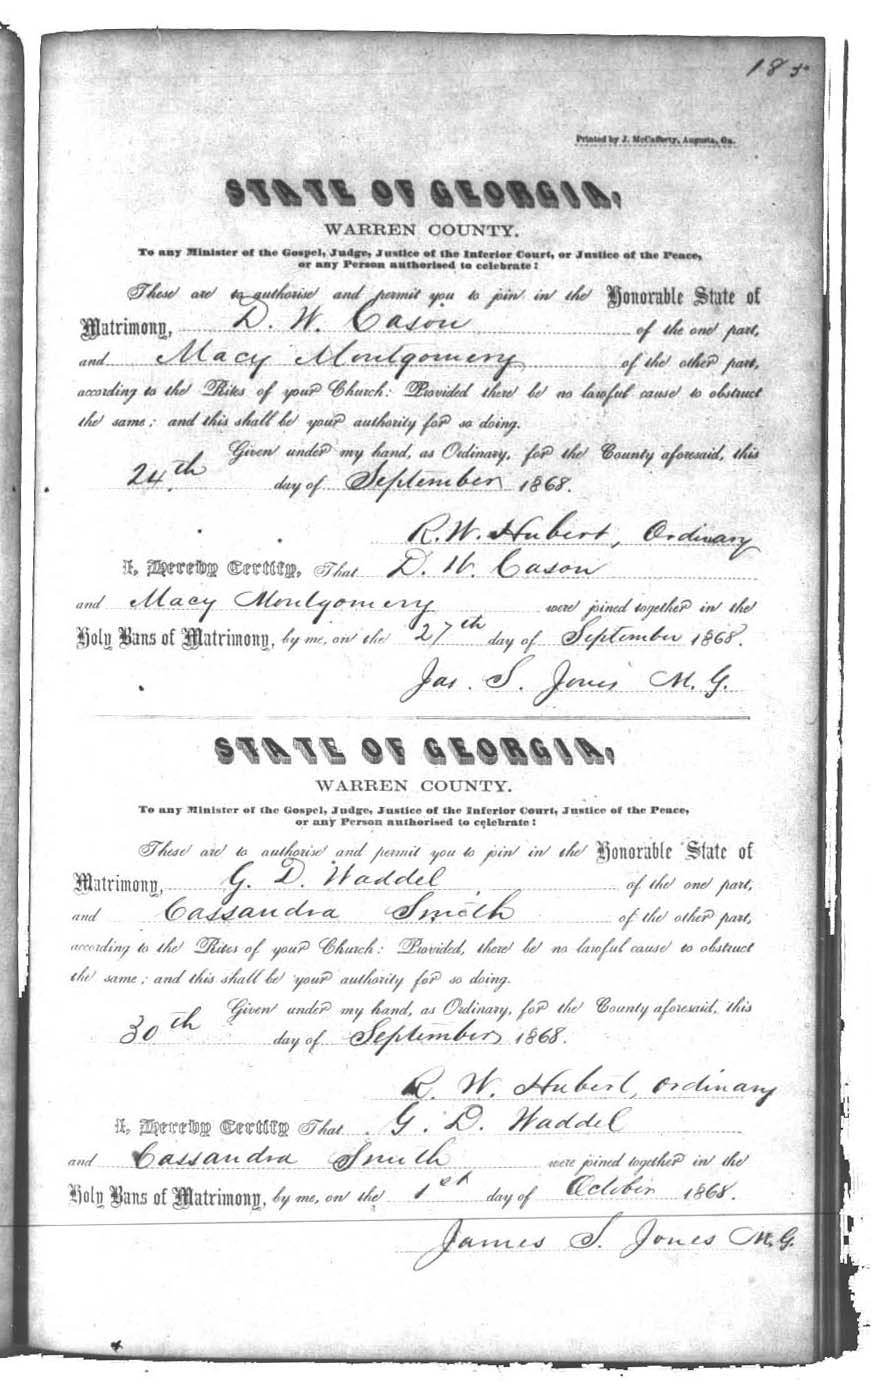 185
Printed by J. McCafferty, Augusta, Ga.
STATE OF GEORGIA,
WARREN COUNTY.
To any Minister of the Gospel, Judge, Justice of the Inferior Court, or Justice of the Peace,
or any Person authorised to celebrate:
These are to authorise and permit you to join in the Honorable State of
Matrimony, D. W. Cason of the one part,
and Macy Montgomery of the other part,
according to the Rites of your Church: Provided there be no lawful cause to obstruct
the same; and this shall be your authority for so doing.
Given under my hand, as Ordinary, for the County aforesaid, this
24th day of September 1868.
R. W. Hubert, Ordinary
I, Hereby Certify, That D. W. Cason
and Macy Montgomery were joined together in the
Holy Bans of Matrimony, by me, on the 27th day of September 1868.
Jas. S. Jones M. G.
STATE OF GEORGIA,
WARREN COUNTY.
To any Minister of the Gospel, Judge, Justice of the Inferior Court, Justice of the Peace,
or any Person authorised to celebrate:
These are to authorise and permit you to join in the Honorable State of
Matrimony, G. D. Waddel of the one part,
and Cassandra Smith of the other part,
according to the Rites of your Church: Provided, there be no lawful cause to obstruct
the same; and this shall be your authority for so doing.
Given under my hand, as Ordinary, for the County aforesaid, this
30th day of September 1868.
R. W. Hubert, Ordinary
I, Hereby Certify That G. D. Waddel
and Cassandra Smith were joined together in the
Holy Bans of Matrimony, by me, on the 1st day of October 1868.
James S. Jones M. G.